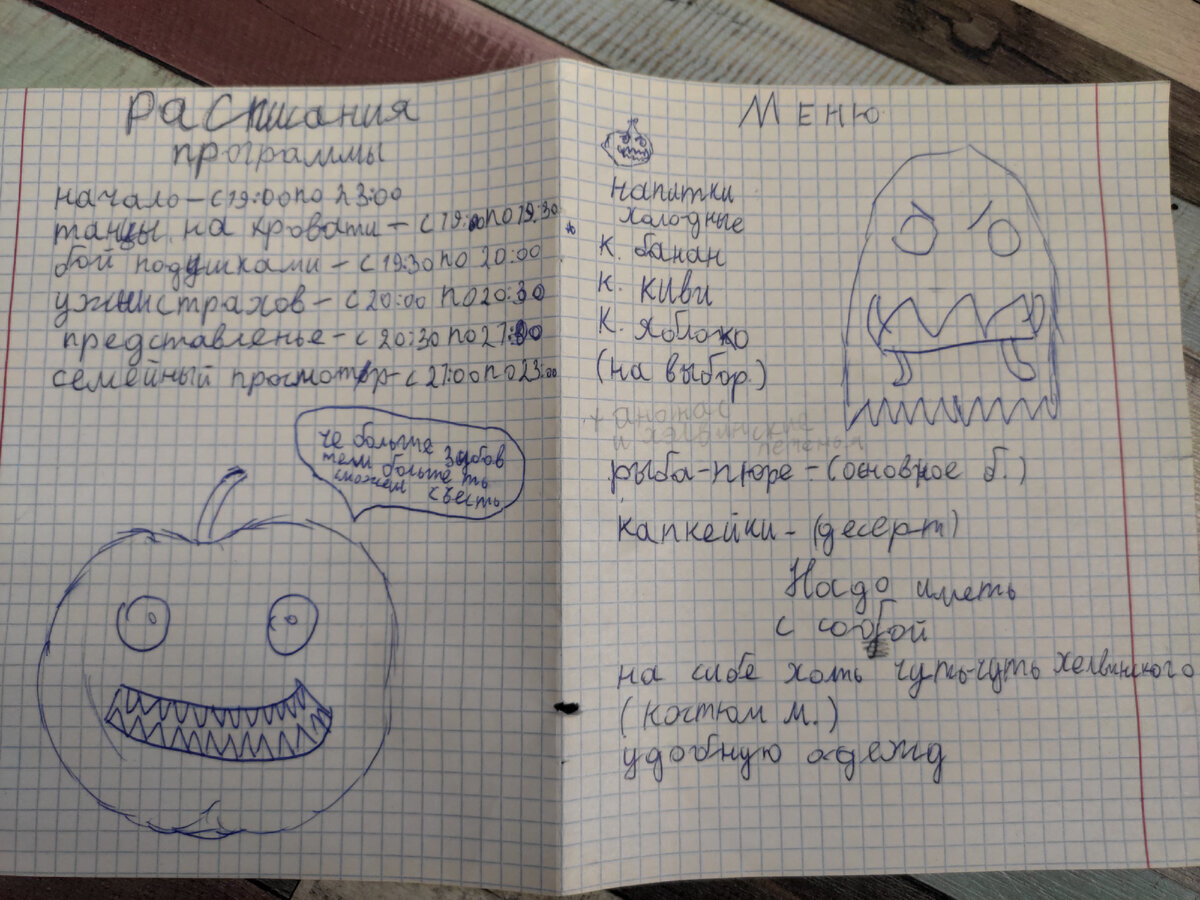 Расписания
программы
начало – с 19:00 по 23:00
танцы на кровати – с 19:00 по 19:30
бой подушками – с 19:30 по 20:00
ужин страхов – с 20:00 по 20:30
представленье – с 20:30 по 21:00
семейный просмотр – с 21:00 по 23:00
че больше зубов
тем больше ть
сможем съесть
Меню
напитки
холодные
К. банан
К. киви
К. яблоко
(на выбор.)
+ анонас
и хэлвинские
печеньи
рыба-пюре - (основное б.)
капкейки - (десерт)
Надо иметь
с собой
на себе хоть чуть-чуть хелвинского
(костюм м.)
удобную одежд